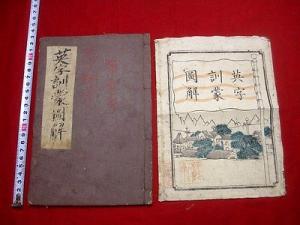 英字訓蒙圖解
英字
訓蒙
圖解